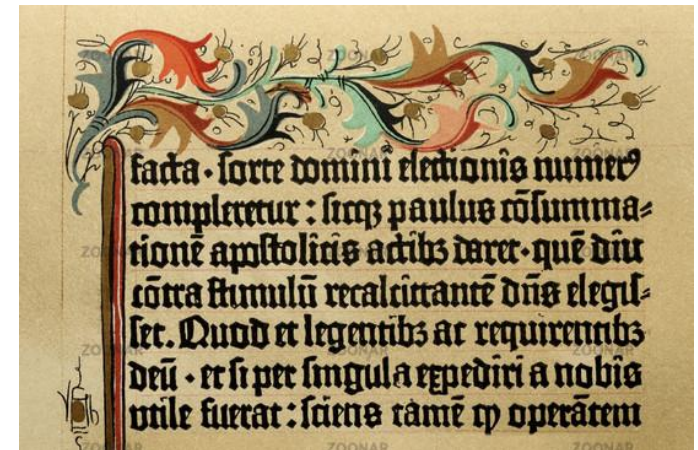 facta · ſorte domini electionis numerꝰ
compleretur : ſicqꝫ paulus cōſumma⸗
tionē apoſtolicis actibꝫ daret · quē diu
cōtra ſtimulū recalcitrantē dn̄s elegiſ⸗
ſet. Quod et legentibꝫ ac requirentibꝫ
deū · et ſi per ſingula expediri a nobis
vtile fuerat : ſciens tamē ꝙ operātem